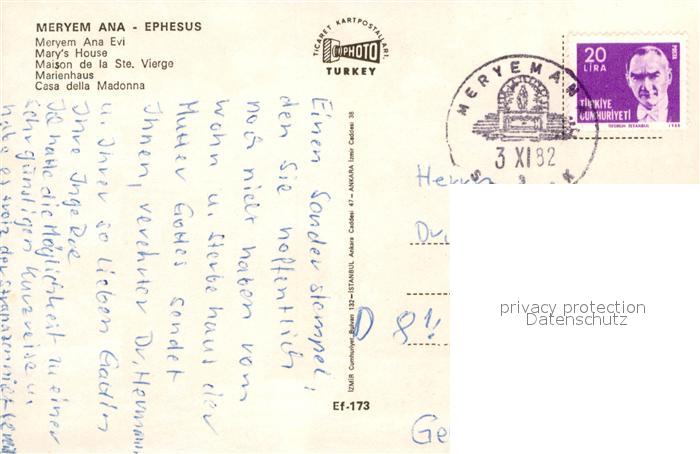 MERYEM ANA - EPHESUS
Meryem Ana Evi
Mary's House
Maison de la Ste. Vierge
Marienhaus
Casa della Madonna
TICARET KARTPOSTALLARI
PHOTO
TURKEY
20
LIRA
TÜRKİYE
CUMHURİYETİ
MERYEMAN
3 XI 82
Einen Sonderstempel,
den Sie hoffentlich
noch nicht haben vom
Wohn u. Sterbehaus der
Mutter Gottes sendet
Ihnen, verehrter Dr. Hermann
u. Ihrer so lieben Gattin
Ihre Inge
Ich hatte die Möglichkeit zu einer
sehr günstigen Kurzreise u.
habe es trotz der Strapazen nicht
İZMİR Cumhuriyet Bulvarı 132 — İSTANBUL Ankara Caddesi 47 — ANKARA İzmir Caddesi 38
Ef-173
Herrn
Dr.
D 81
Ge
privacy protection
Datenschutz